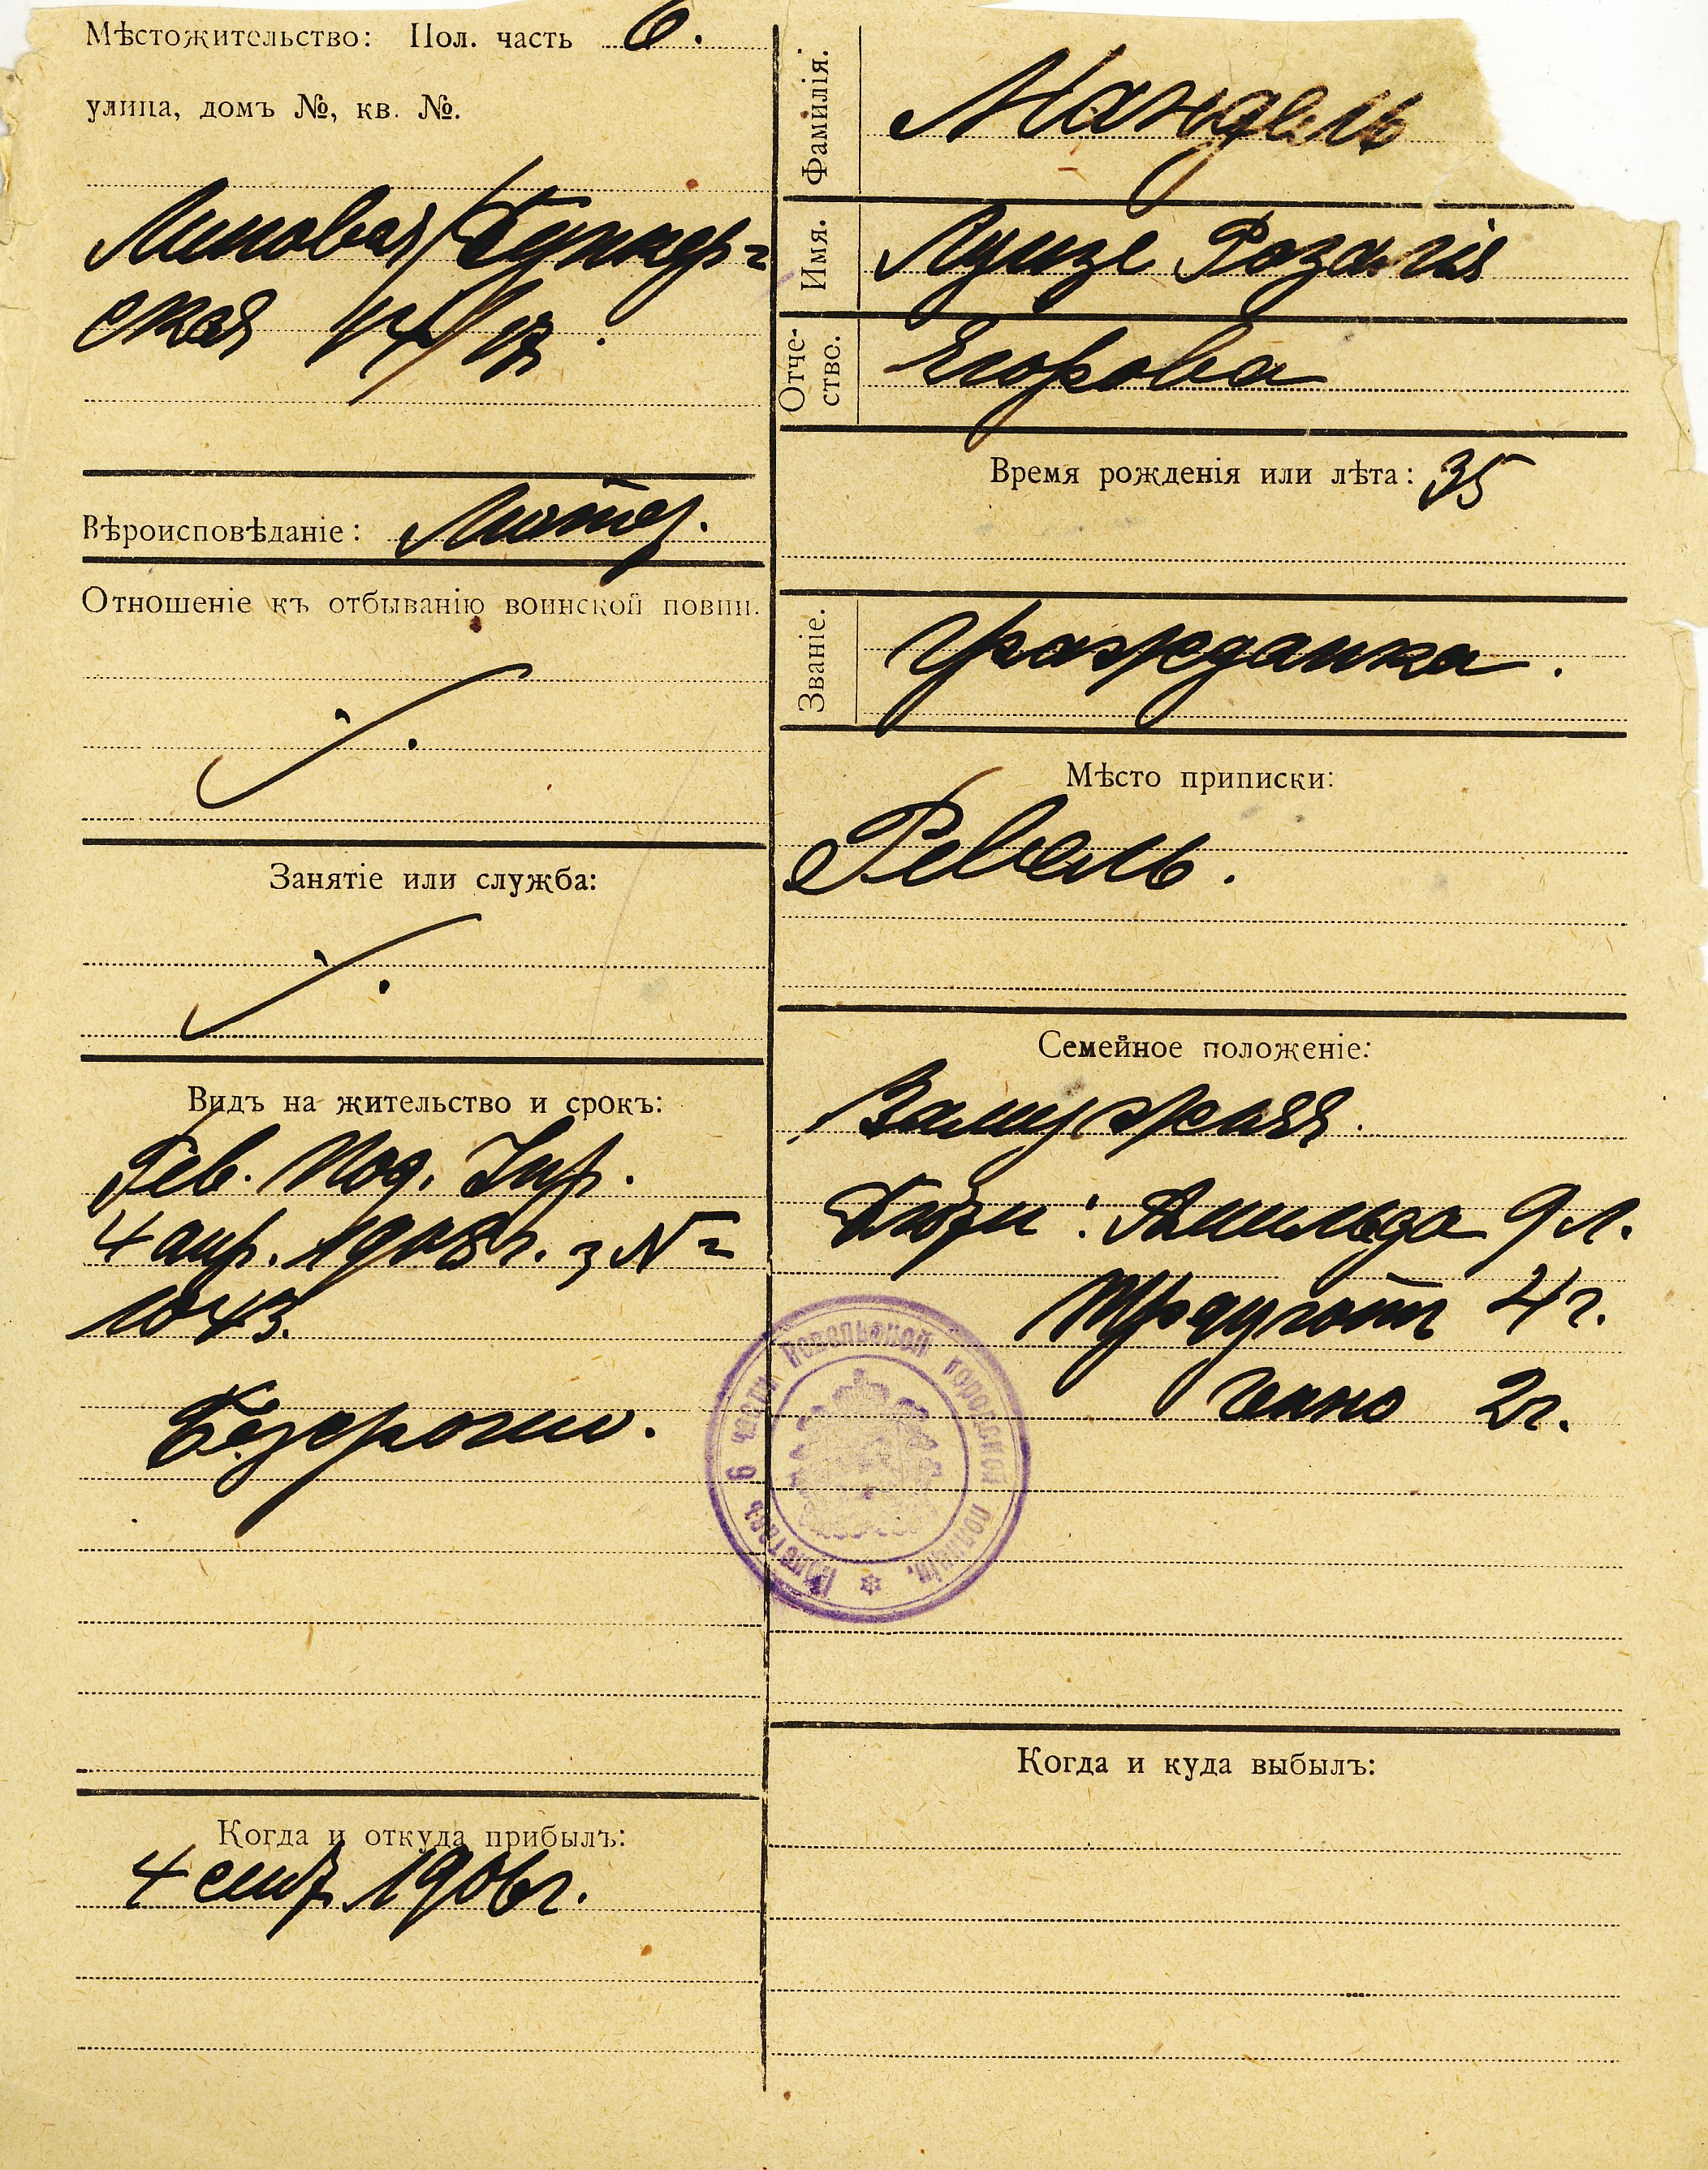 Мѣстожительство: Пол. часть 6.
улица, домъ №, кв. №.
Липовая/Бункер=
ская 14/17.
Вѣроисповѣданіе: Лютер.
Отношеніе къ отбыванію воинской повин.
Занятіе или служба:
Видъ на жительство и срокъ:
Рев. Под. Упр.
4 апр. 1908 г. з №
1043.
Безсрочно.
Когда и откуда прибылъ:
4 сент. 1906 г.
Фамилія. Мандель
Имя. Луизе Розалія
Отче-
ство. Егорова
Время рожденія или лѣта: 35
Званіе. Гражданка.
Мѣсто приписки:
Ревель.
Семейное положеніе:
Замужняя.
Дѣти: 9 л.
Траугот 4 г.
2 г.
6 части Ревельской городской полиціи.
Когда и куда выбылъ: